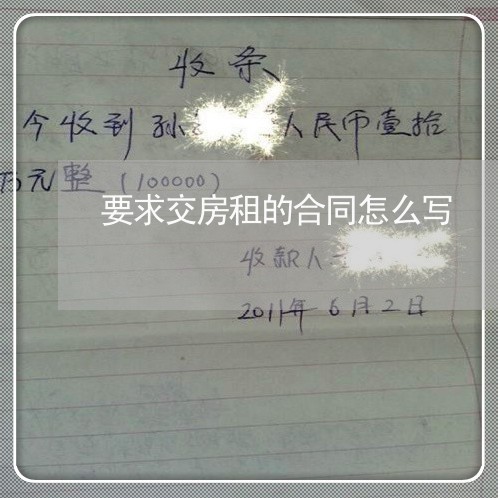 收条
今收到孙 人民币壹拾
万元整（100000）
要求交房租的合同怎么写
收款人
2011年6月2日